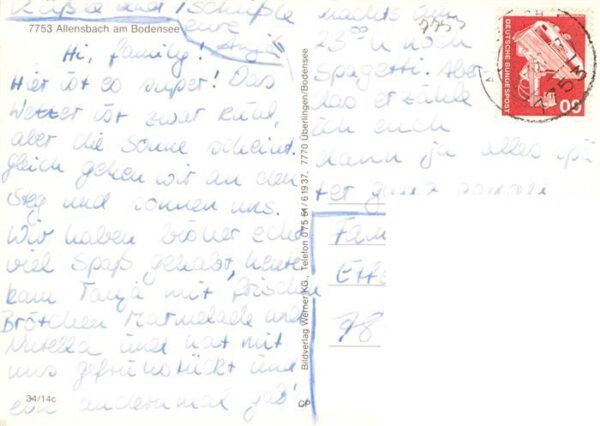 Grüße und Tschüße
eure
7753 Allensbach am Bodensee
Hi, family!
Hier ist es super! Das
Wetter ist zwar kühl,
aber die Sonne scheint.
gleich gehen wir an den
Steg und sonnen uns.
Wir haben bisher echt
viel Spaß gehabt, heute
kam Tanja mit frischen
Brötchen Marmelade und
Nutella und hat mit
uns gefrühstückt und
ein andermal gab's
34/14c
nachts um
23⁰⁰ u noch
Spagetti. Aber
das erzähle
ich euch
dann ja alles spä
ter ganz
Fam
78
Bildverlag Werner KG., Telefon 075 51/6 19 37, 7770 Überlingen/Bodensee
CP
7753
DEUTSCHE BUNDESPOST
60